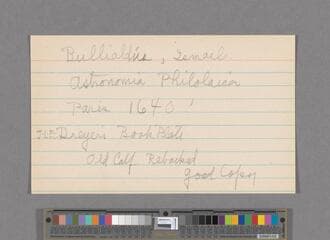 Bullialdus, Ismael
Astronomia Philolaica
Paris 1640
J.L.E. Dreyer's Book Plate
Old Calf Rebacked
good copy